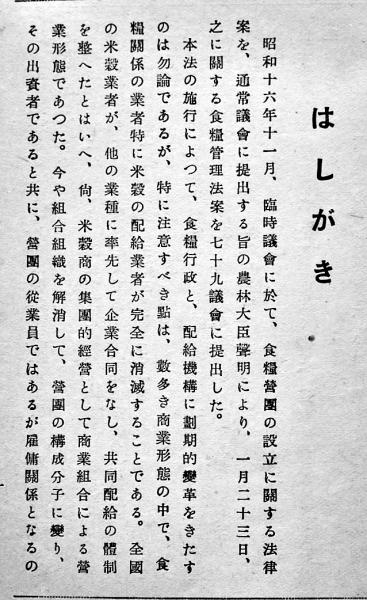 はしがき
昭和十六年十一月、臨時議會に於て、食糧營團の設立に關する法律
案を、通常議會に提出する旨の農林大臣聲明により、一月二十三日、
之に關する食糧管理法案を七十九議會に提出した。
本法の施行によつて、食糧行政と、配給機構に劃期的變革をきたす
のは勿論であるが、特に注意すべき點は、數多き商業形態の中で、食
糧關係の業者特に米穀の配給業者が完全に消滅することである。全國
の米穀業者が、他の業種に率先して企業合同をなし、共同配給の體制
を整へたとはいへ、尙、米穀商の集團的經營として商業組合による營
業形態であつた。今や組合組織を解消して、營團の構成分子に變り、
その出資者であると共に、營團の從業員ではあるが雇傭關係となるの